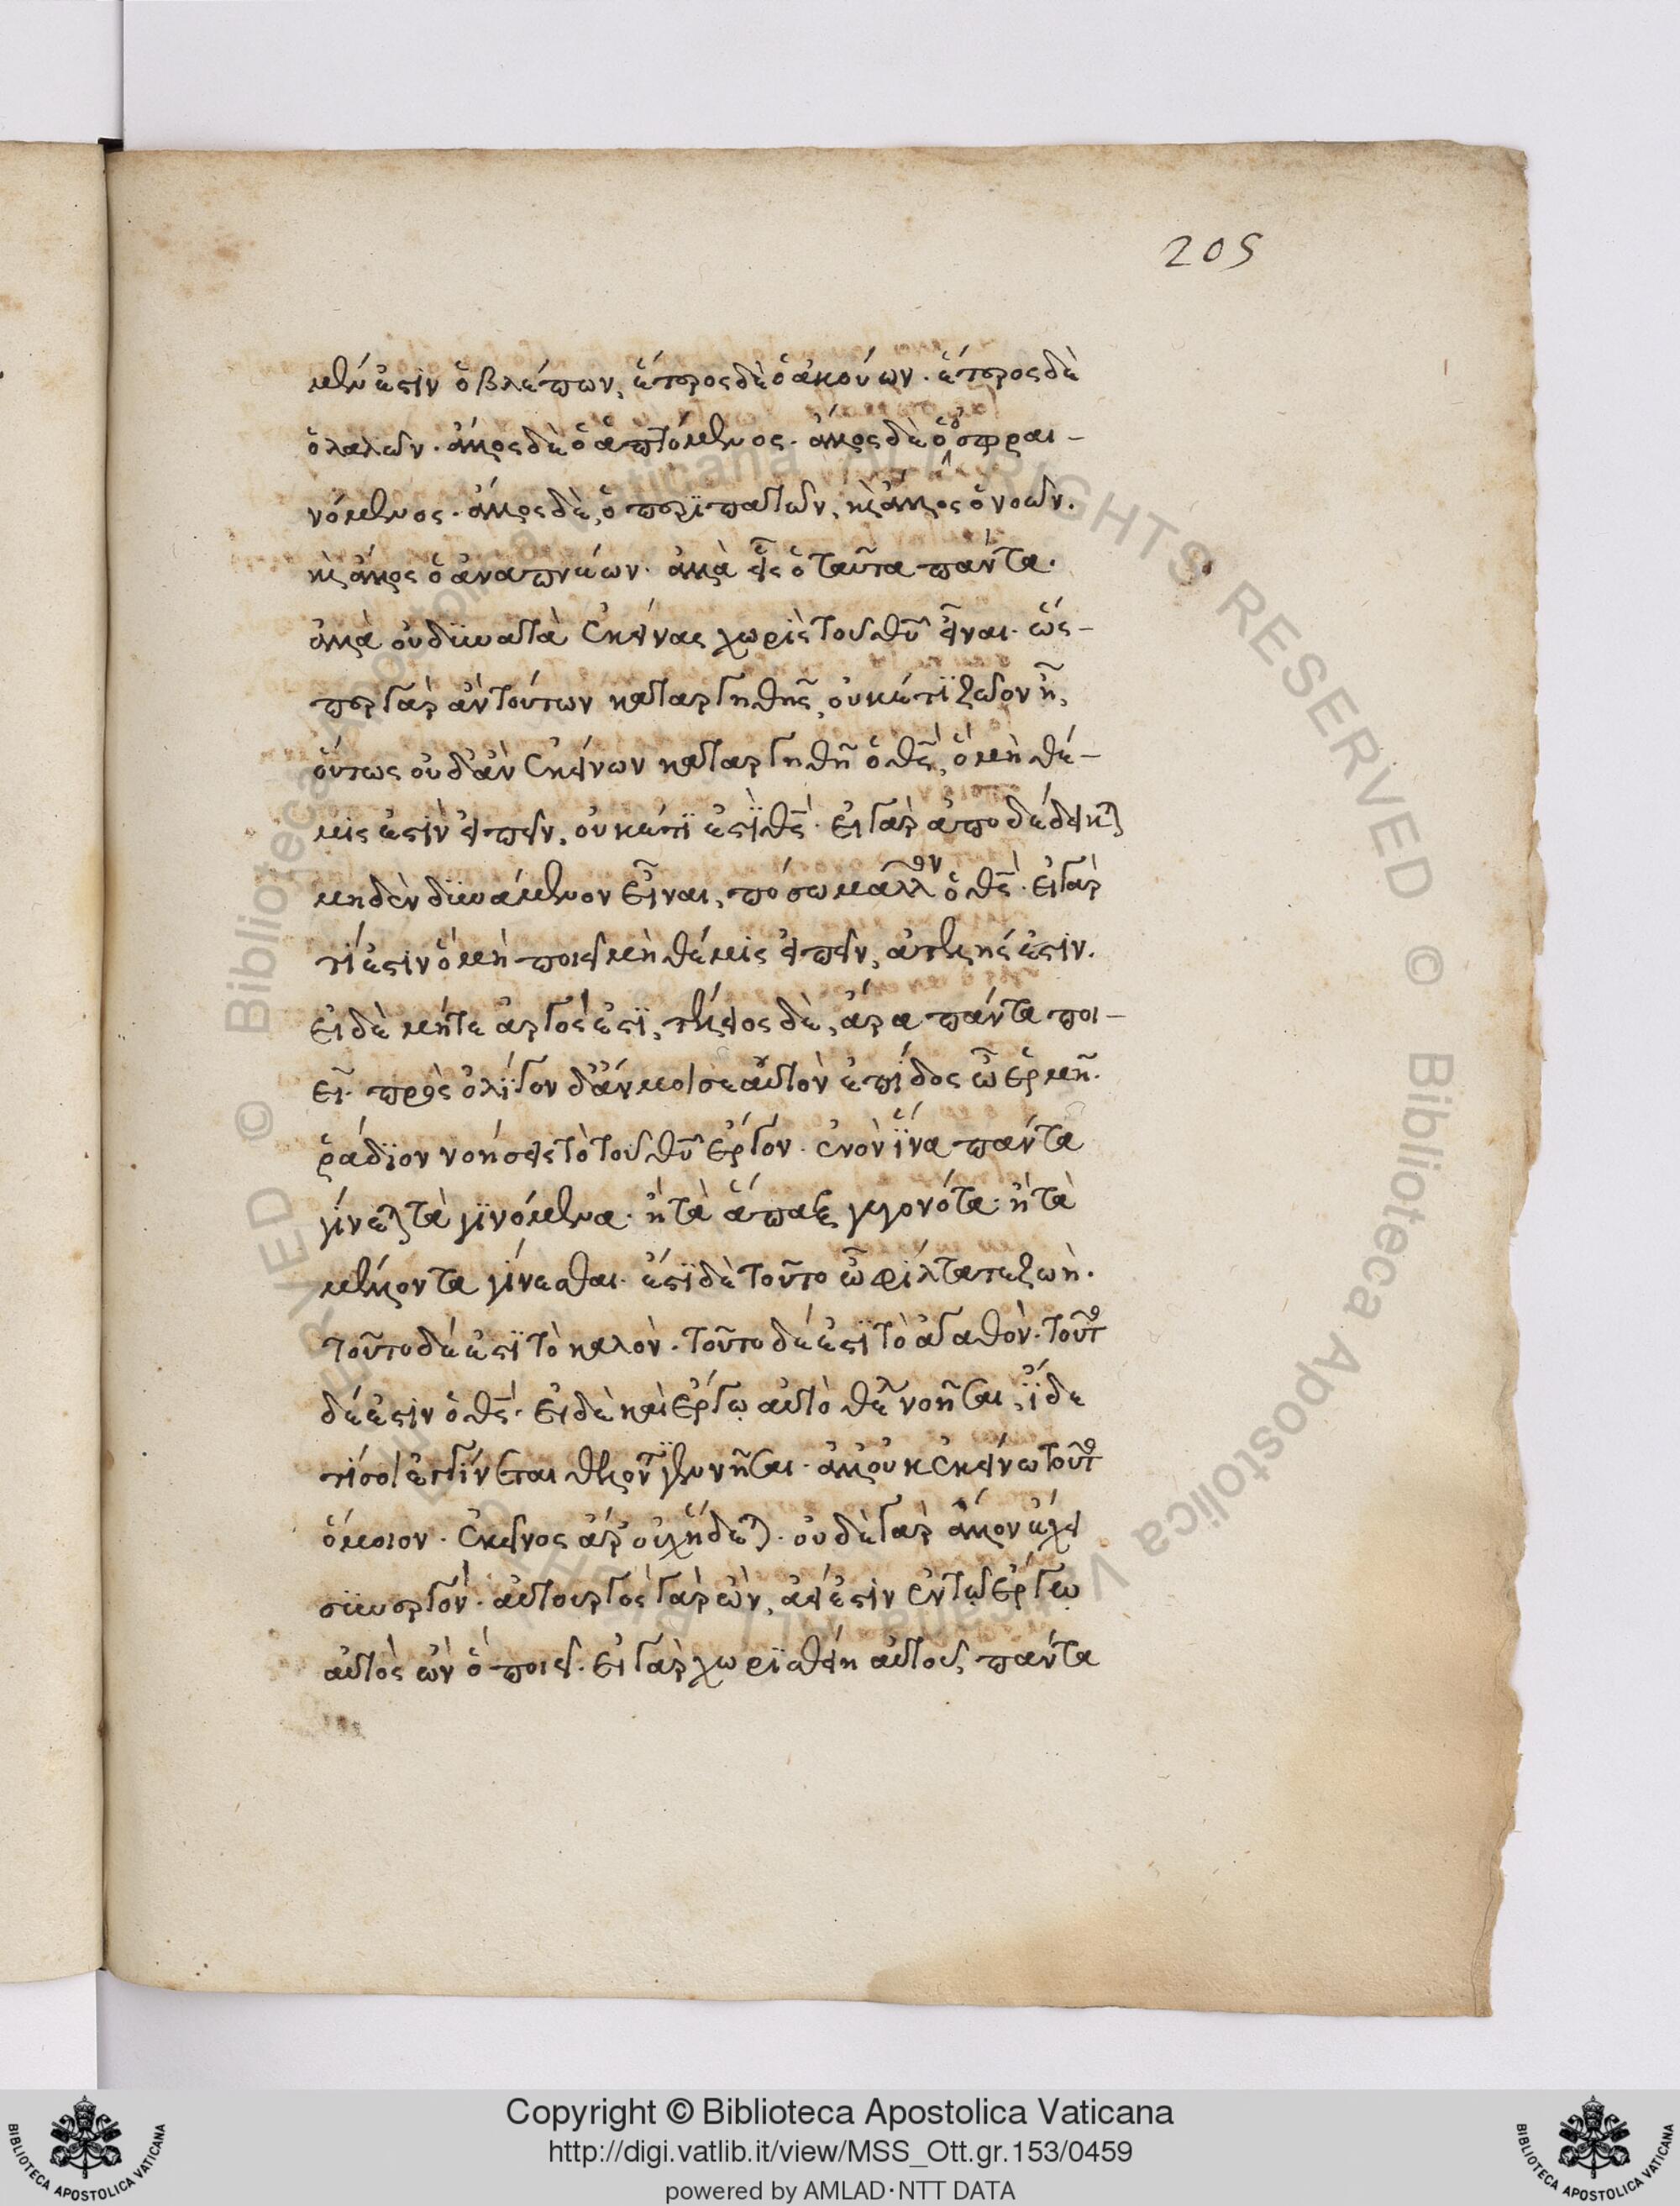 205
μέν ἐστιν ὁ βλέπων, ἕτερος δὲ ὁ ἀκούων. ἕτερος δὲ
ὁ λαλῶν. ἄλλος δὲ ὁ ἁπτόμενος. ἄλλος δὲ ὁ ὀσφραι-
νόμενος. ἄλλος δὲ, ὁ περϊπατῶν, κ̀ς ἄλλος ὁ νοῶν.
κ̀ς ἄλλος ὁ ἀναπνέων. ἀλλὰ εἷς ὁ ταῦτα πάντα.
ἀλλὰ οὐ δϋνατὰ ἐκείνας χωρὶς τοῦ θῦ εἶναι. ὥς-
περ γὰρ ἂν τούτων καταργηθῇς, οὐκέτϊ ζῶον ᾖ,
οὕτως οὐδ' ἂν ἐκείνων καταργηθῇ ὁ θς̄, ὃ μὴ θέ-
μις ἐστὶν εἰπεῖν, οὐκέτϊ ἐστϊ θς̄. εἰ γὰρ ἀποδέδεικται
μηδὲν δϋνάμενον εἶναι, πόσω μᾶλλον ὁ θς̄. εἰ γάρ
τί ἐστιν ὃ μὴ ποιεῖ μὴ θέμις εἰπεῖν, ἀτελής ἐστιν.
εἰ δὲ μήτε ἀργός ἐστϊ, τέλειος δὲ, ἄρα πάντα ποι-
εῖ. πρὸς ὀλίγον δ' ἄν μοι σεαυτὸν ἐπίδος ὦ ἑρμῆ.
ῥάδϊον νοήσεις τὸ τοῦ θῦ ἔργον. ἐνὸν ἵνα πάντα
γίνεται τὰ γϊνόμενα. ἢ τὰ ἅπαξ γεγονότα. ἢ τὰ
μέλλοντα γίνεσθαι. ἔστϊ δὲ τοῦτο ὦ φίλτατε ζωή.
τοῦτο δέ ἐστϊ τὸ καλὸν. τοῦτο δέ ἐστϊ τὸ ἀγαθὸν. τοῦτο
δέ ἐστιν ὁ θς̄. εἰ δὲ καὶ ἔργῳ αὐτὸ θέλ νοῆσαι, ἴδε
τί σοὶ ἐγγίνεται θέλοντϊ γεννῆσαι. ἀλλ' οὐκ ἐκείνω τοῦτο
ὅμοιον. ἐκεῖνος ἄρ' οὐχ ἥδεται. οὐδὲ γὰρ ἄλλον ἔχει
σϋνεργόν. αὐτουργὸς γὰρ ὢν, ἀεί ἐστιν ἐν τῷ ἔργῳ
αὐτὸς ὢν ὃ ποιεῖ. εἰ γὰρ χωρϊσθείη αὐτοῦ, πάντα
Copyright © Biblioteca Apostolica Vaticana
http://digi.vatlib.it/view/MSS_Ott.gr.153/0459
powered by AMLAD·NTT DATA